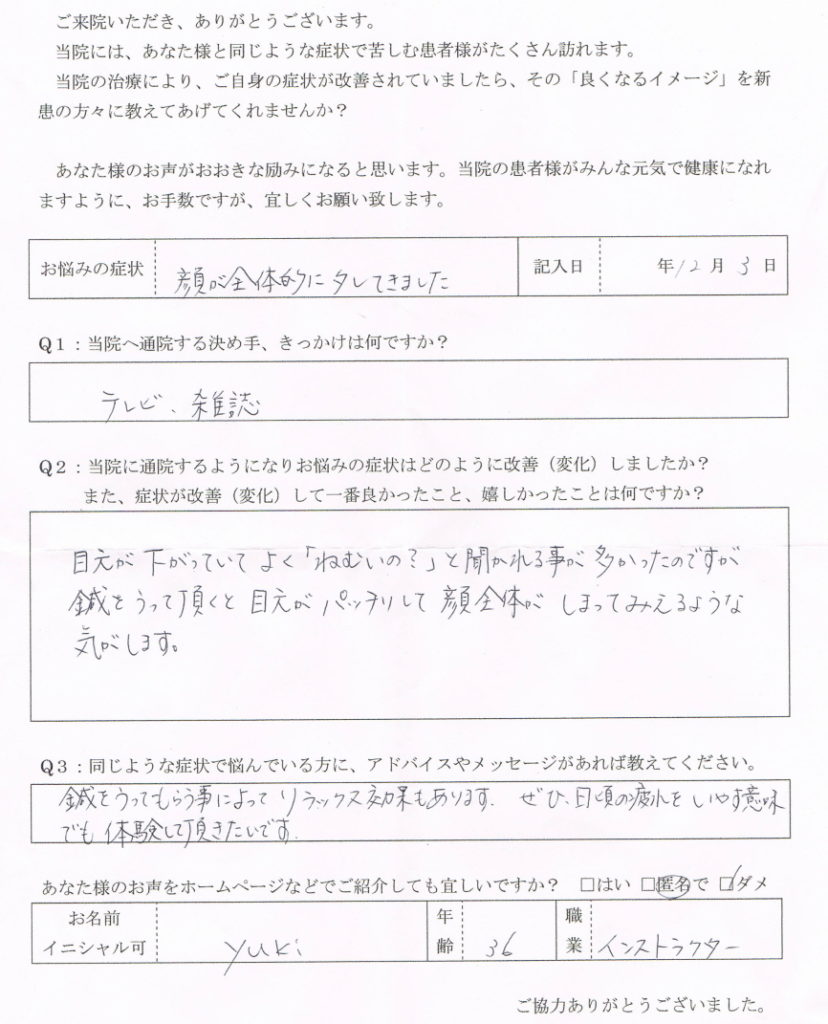 ご来院いただき、ありがとうございます。
当院には、あなた様と同じような症状で苦しむ患者様がたくさん訪れます。
当院の治療により、ご自身の症状が改善されていましたら、その「良くなるイメージ」を新
患の方々に教えてあげてくれませんか？
あなた様のお声がおおきな励みになると思います。当院の患者様がみんな元気で健康になれ
ますように、お手数ですが、宜しくお願い致します。
お悩みの症状 顔が全体的にタレてきました 記入日 年12月3日
Q1：当院へ通院する決め手、きっかけは何ですか？
テレビ、雑誌
Q2：当院に通院するようになりお悩みの症状はどのように改善（変化）しましたか？
また、症状が改善（変化）して一番良かったこと、嬉しかったことは何ですか？
目元が下がっていてよく「ねむいの？」と聞かれる事が多かったのですが
鍼をうって頂くと目元がパッチリして顔全体がしまってみえるような
気がします。
Q3：同じような症状で悩んでいる方に、アドバイスやメッセージがあれば教えてください。
鍼をうってもらう事によってリラックス効果もあります。ぜひ、日頃の疲れをいやす意味
でも体験して頂きたいです。
あなた様のお声をホームページなどでご紹介しても宜しいですか？ □はい □匿名で □ダメ
お名前 年 職
イニシャル可 yuki 齢 36 業 インストラクター
ご協力ありがとうございました。